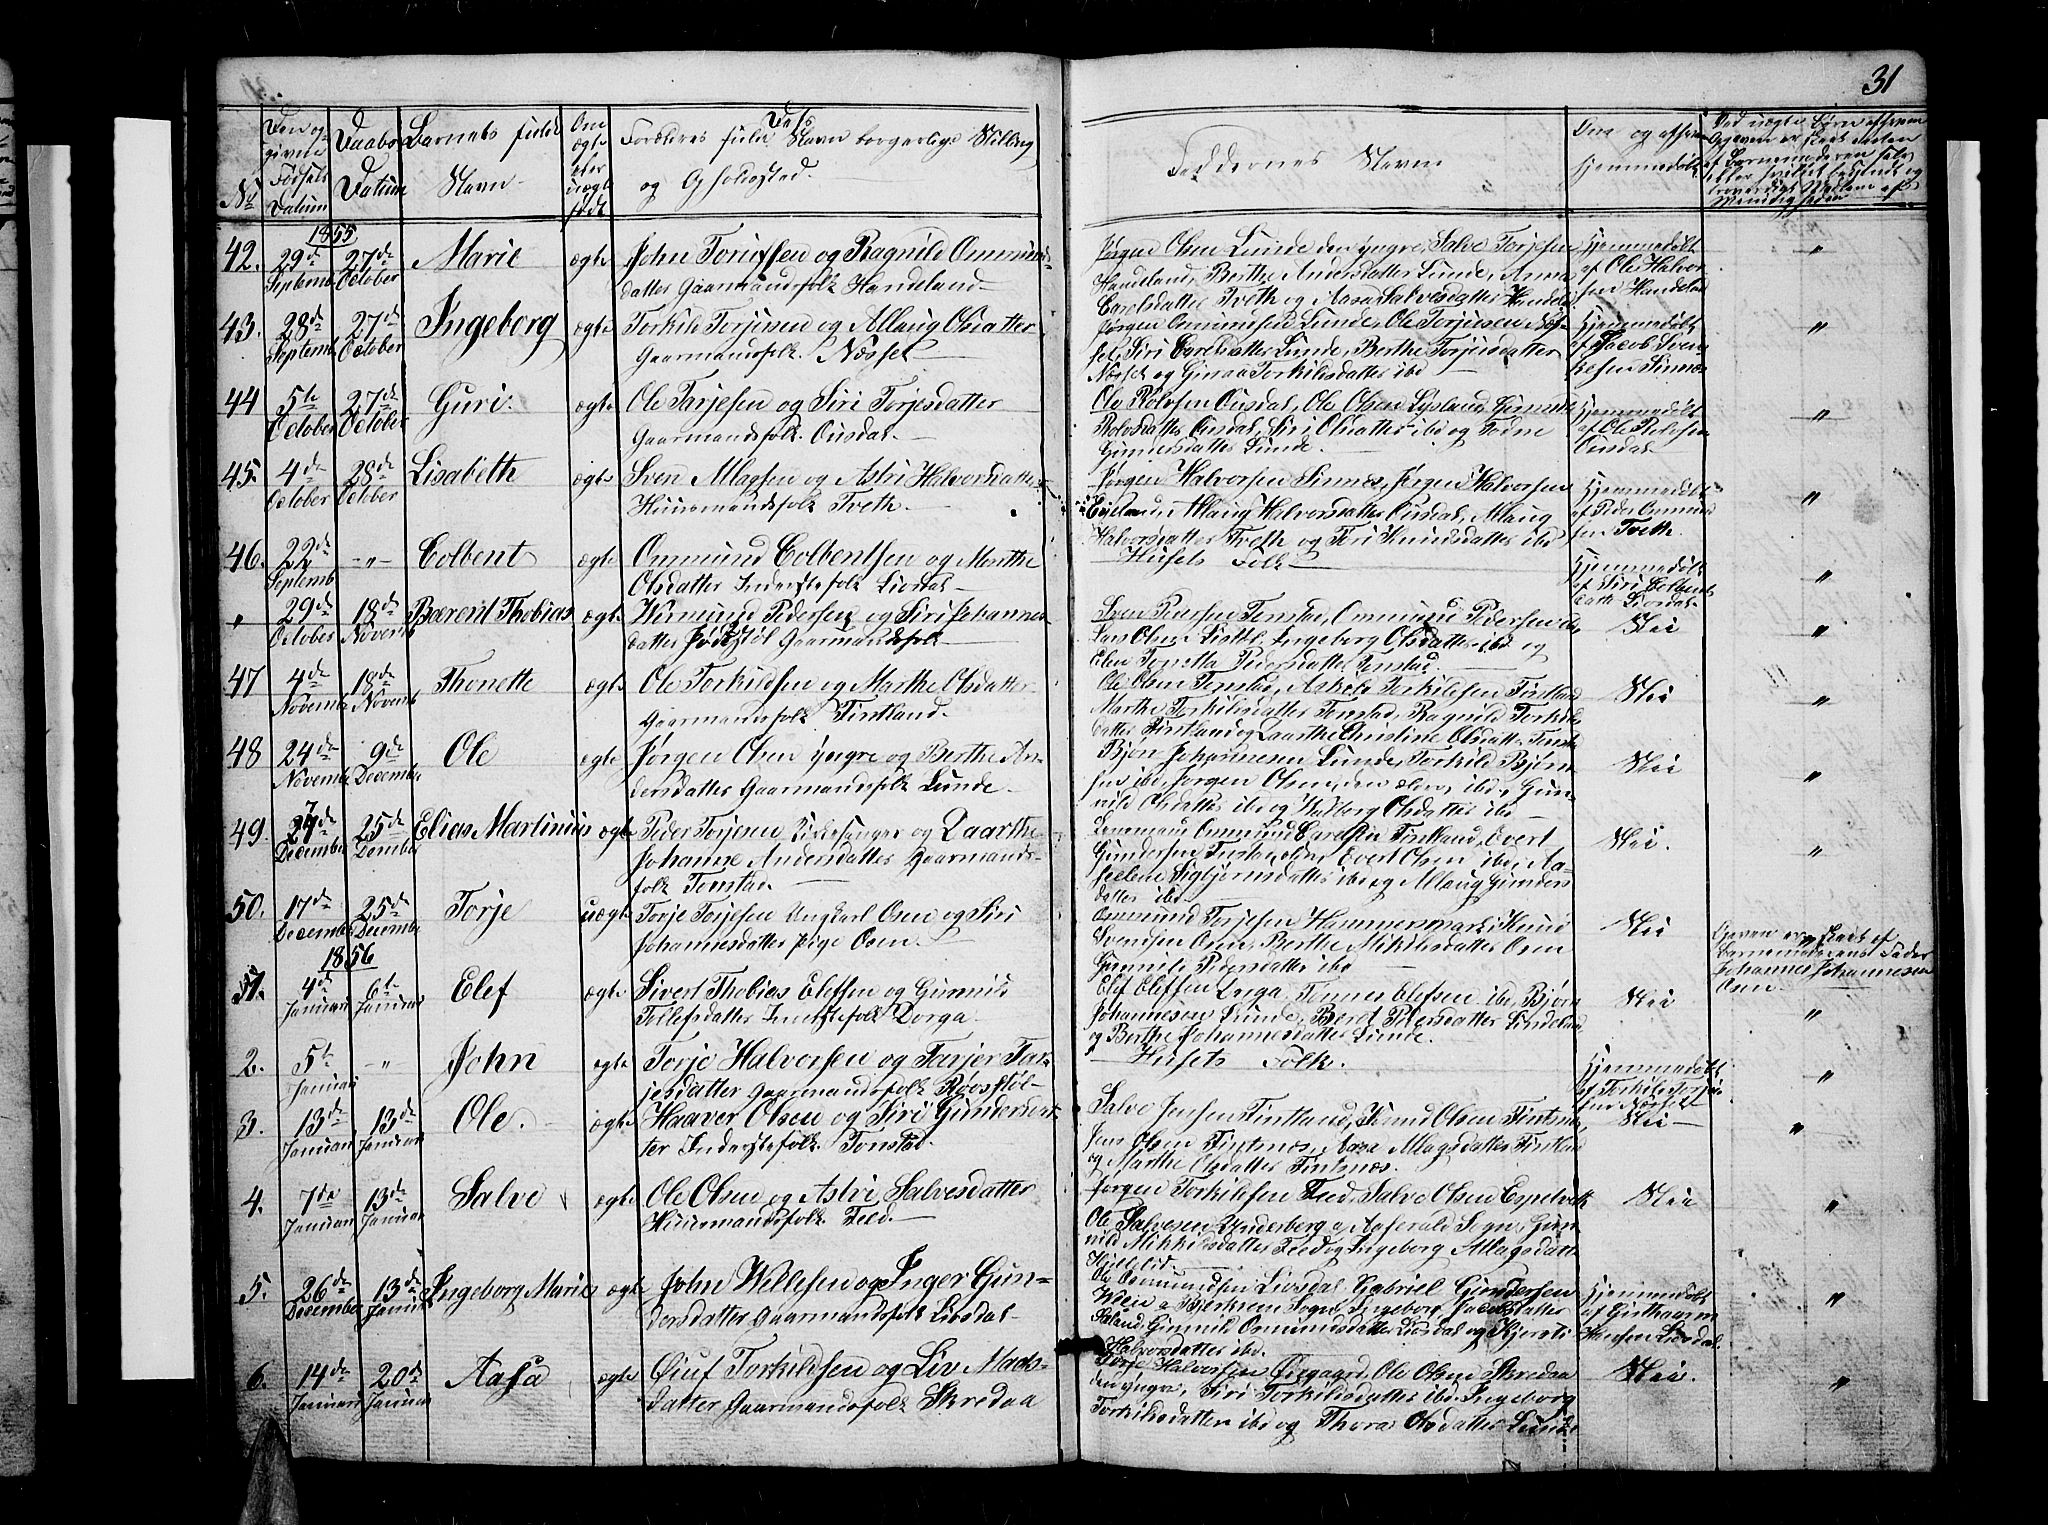 31
No
Den opgivne Fødsels Datum
Daabs Datum
Barnets fulde Navn
Om ægte eller uægte født
Forældres fulde Navn borgerlige Stilling
og Opholdssted.
Faddernes Navn
hjemmedøbt
1855
42. 29de Septemb 27de October Marie ægte John Torjussen og Ragnild Ommunds-
datter Gaarmandsfolk Handeland
Jørgen Olsen Lunde den yngre, Salve Torjesen
Handeland, Berthe Andersdatter Lunde, Anna
Carlsdatter Tveth og Aasa Salvesdatter Handeld
Hjemmedøbt
af Ole Halvor-
sen Handeland
43. 28de Septemb 27de October Ingeborg ægte Torkild Torjusen og Allaug Olsdatter
Gaarmandsfolk Næsset
Jørgen Ommundsen Lunde, Ole Torjusen Næs-
set, Siri Carlsdatter Lunde, Berthe Torjusdatter
Næsset og Gunaa Torkildsdatter ibd
Hjemmedøbt
af Jacob Sven-
kesen Sinnæs
44 5te October 27de October Guri. ægte Ole Tarjesen og Siri Torjesdatter
Gaarmandsfolk Ousdal.
Ole Rolvsen Ousdal, Ole Olsen Lysland, Gunnild
Rolvsdatter Ousdal, Siri Olsdatter ibd og Todne
Gundersdatter Lunde.
Hjemmedøbt
af Ole Rolvsen
Ousdal
45. 4de October 28de October Lisabeth ægte Sven Allagsen og Astri Halvorsdatter
Huusmandsfolk Tveth.
Jørgen Halvorsen Sinnæs, Jørgen Halvorsen
Egeland Allaug Halvorsdatter Ousdal, Allaug
Halvorsdatter Tveth og Siri Knudsdatter ibd
Hjemmedøbt
af Peder Ommund
sen Tveth
46. 22de Septemb " Colbent ægte Ommund Colbentsen og Marthe
Olsdatter Inderstefolk Liosdal
Husets Folk
Hjemmedøbt
af Siri Colbents
datt Liosdal
" 29de October 18de Novemb Bærent Thobias ægte Wermund Pedersen og Siri Johannes-
datter Gaarmandsfolk
Sven Pedersen Tonstad, Ommund Pedersen ibd,
Lars Olsen Ingeborg Olsdatter ibd og
Elen Tonetta Pedersdatter Tonstad.
Nei
47 4de Novemb 18de Novemb Thonette ægte Ole Torkildsen og Marthe Olsdatter
Gaarmandsfolk Tintland.
Ole Olsen Tonstad, Torkildsen Tintland
Marthe Torkildsdatter Tonstad, Ragnild Torkilds
datter Tintland og Laarthe Christine Olsdatt Tonstad
Nei
48 24de Novembe 9de Decembe Ole ægte Jørgen Olsen yngre og Berthe An-
dersdatter Gaarmandsfolk Lunde.
Bjørn Johannesen Lunde, Torkild Bjørn-
sen ibd, Jørgen Olsen, den ældre, ibd, Gun-
nild Olsdatter ibd og Valborg Olsdatter ibd
Nei
49. December 25de Elias Martinius ægte Peder Torjesen Kirkesanger og Laarthe
Johanne Andersdatter Gaarmands-
folk Tonstad.
Lensmand Ommund Tintland, Evert
Gundersen Tonstad, Evert Olsen ibd, Aa-
Sigbjørnsdatter ibd og Allaug Gunders
datter ibd
Nei.
50. 17de December 25de December Torje uægte Torje Torjesen Ungkarl Osen og Siri
Johannesdatter Pige Osen.
Ommund Torjesen Hammersmark, Knud
Svendsen Osen, Berthe Mikkelsdatter Osen
Gunnild Pedersdatter ibd
Nei
Opgaven er skeet af
Barnemoderens Fader
Johannes Johannesen
Osen.
1856
1. 4de Januari 6te Januari Elef ægte Sivert Thobias Elefsen og Gunnild
Tollefsdatter Inderstefolk Dorga.
Elef Elefsen Dorga, Tønnes Elefsen ibd, Bjørn
Johannesen Lunde, Beret Pedersdatter Lindeland
og Berthe Johannesdatter Lunde.
Nei
2. 5te Januari " John ægte Torje Halvorsen og Tarjer Tar-
jesdatter Gaarmandsfolk Røosstøl
Husets Folk.
Hjemmedøbt
af Torkild Torju-
sen Næsset
3. 13de Januari 13de Januari Ole. ægte Haaver Olsen og Siri Gundersdat-
ter Inderstefolk Tonstad.
Salve Jensen Tintland, Knud Olsen Tintnæs,
Jens Olsen Tintnæs, Aasa Allagsdatter Tintland
og Marthe Olsdatter Tintnæs.
Nei
4. 7de Januari 13de Januari Salve ægte Ole Olsen og Astri Salvesdatter
Huusmandsfolk Feed.
Jørgen Torkildsen Feed, Salve Olsen Espetvedt
Ole Salvesen Underberg a Aaserald Sogn, Gun
nild Mikkelsdatter Feed og Ingeborg Allagsdatt
Nei
5. 26de December 13de Januari Ingeborg Marie ægte John Willesen og Inger Gun-
dersdatter Gaarmandsfolk Liosdal
Ole Osmundsen Liosdal, Gabriel Gundersen
a Bjerkrem Sogn, Ingeborg Jacobsdatter
Gunnild Osmundsdatter Liosdal og Kjersti
Halvorsdatter ibd.
Hjemmedøbt
af Guthorm
Hansen Liosdal.
6. 14de Januari 20de Januari Aasa ægte Torkildsen og Liv Mads-
datter Gaarmandsfolk Skredaa
Torje Halvorsen Ole Olsen Skredaa
den yngre, Siri Torkildsdatter ibd, Ingeborg
Torkildsdatter ibd og Thora Olsdatter Lunde
Nei.